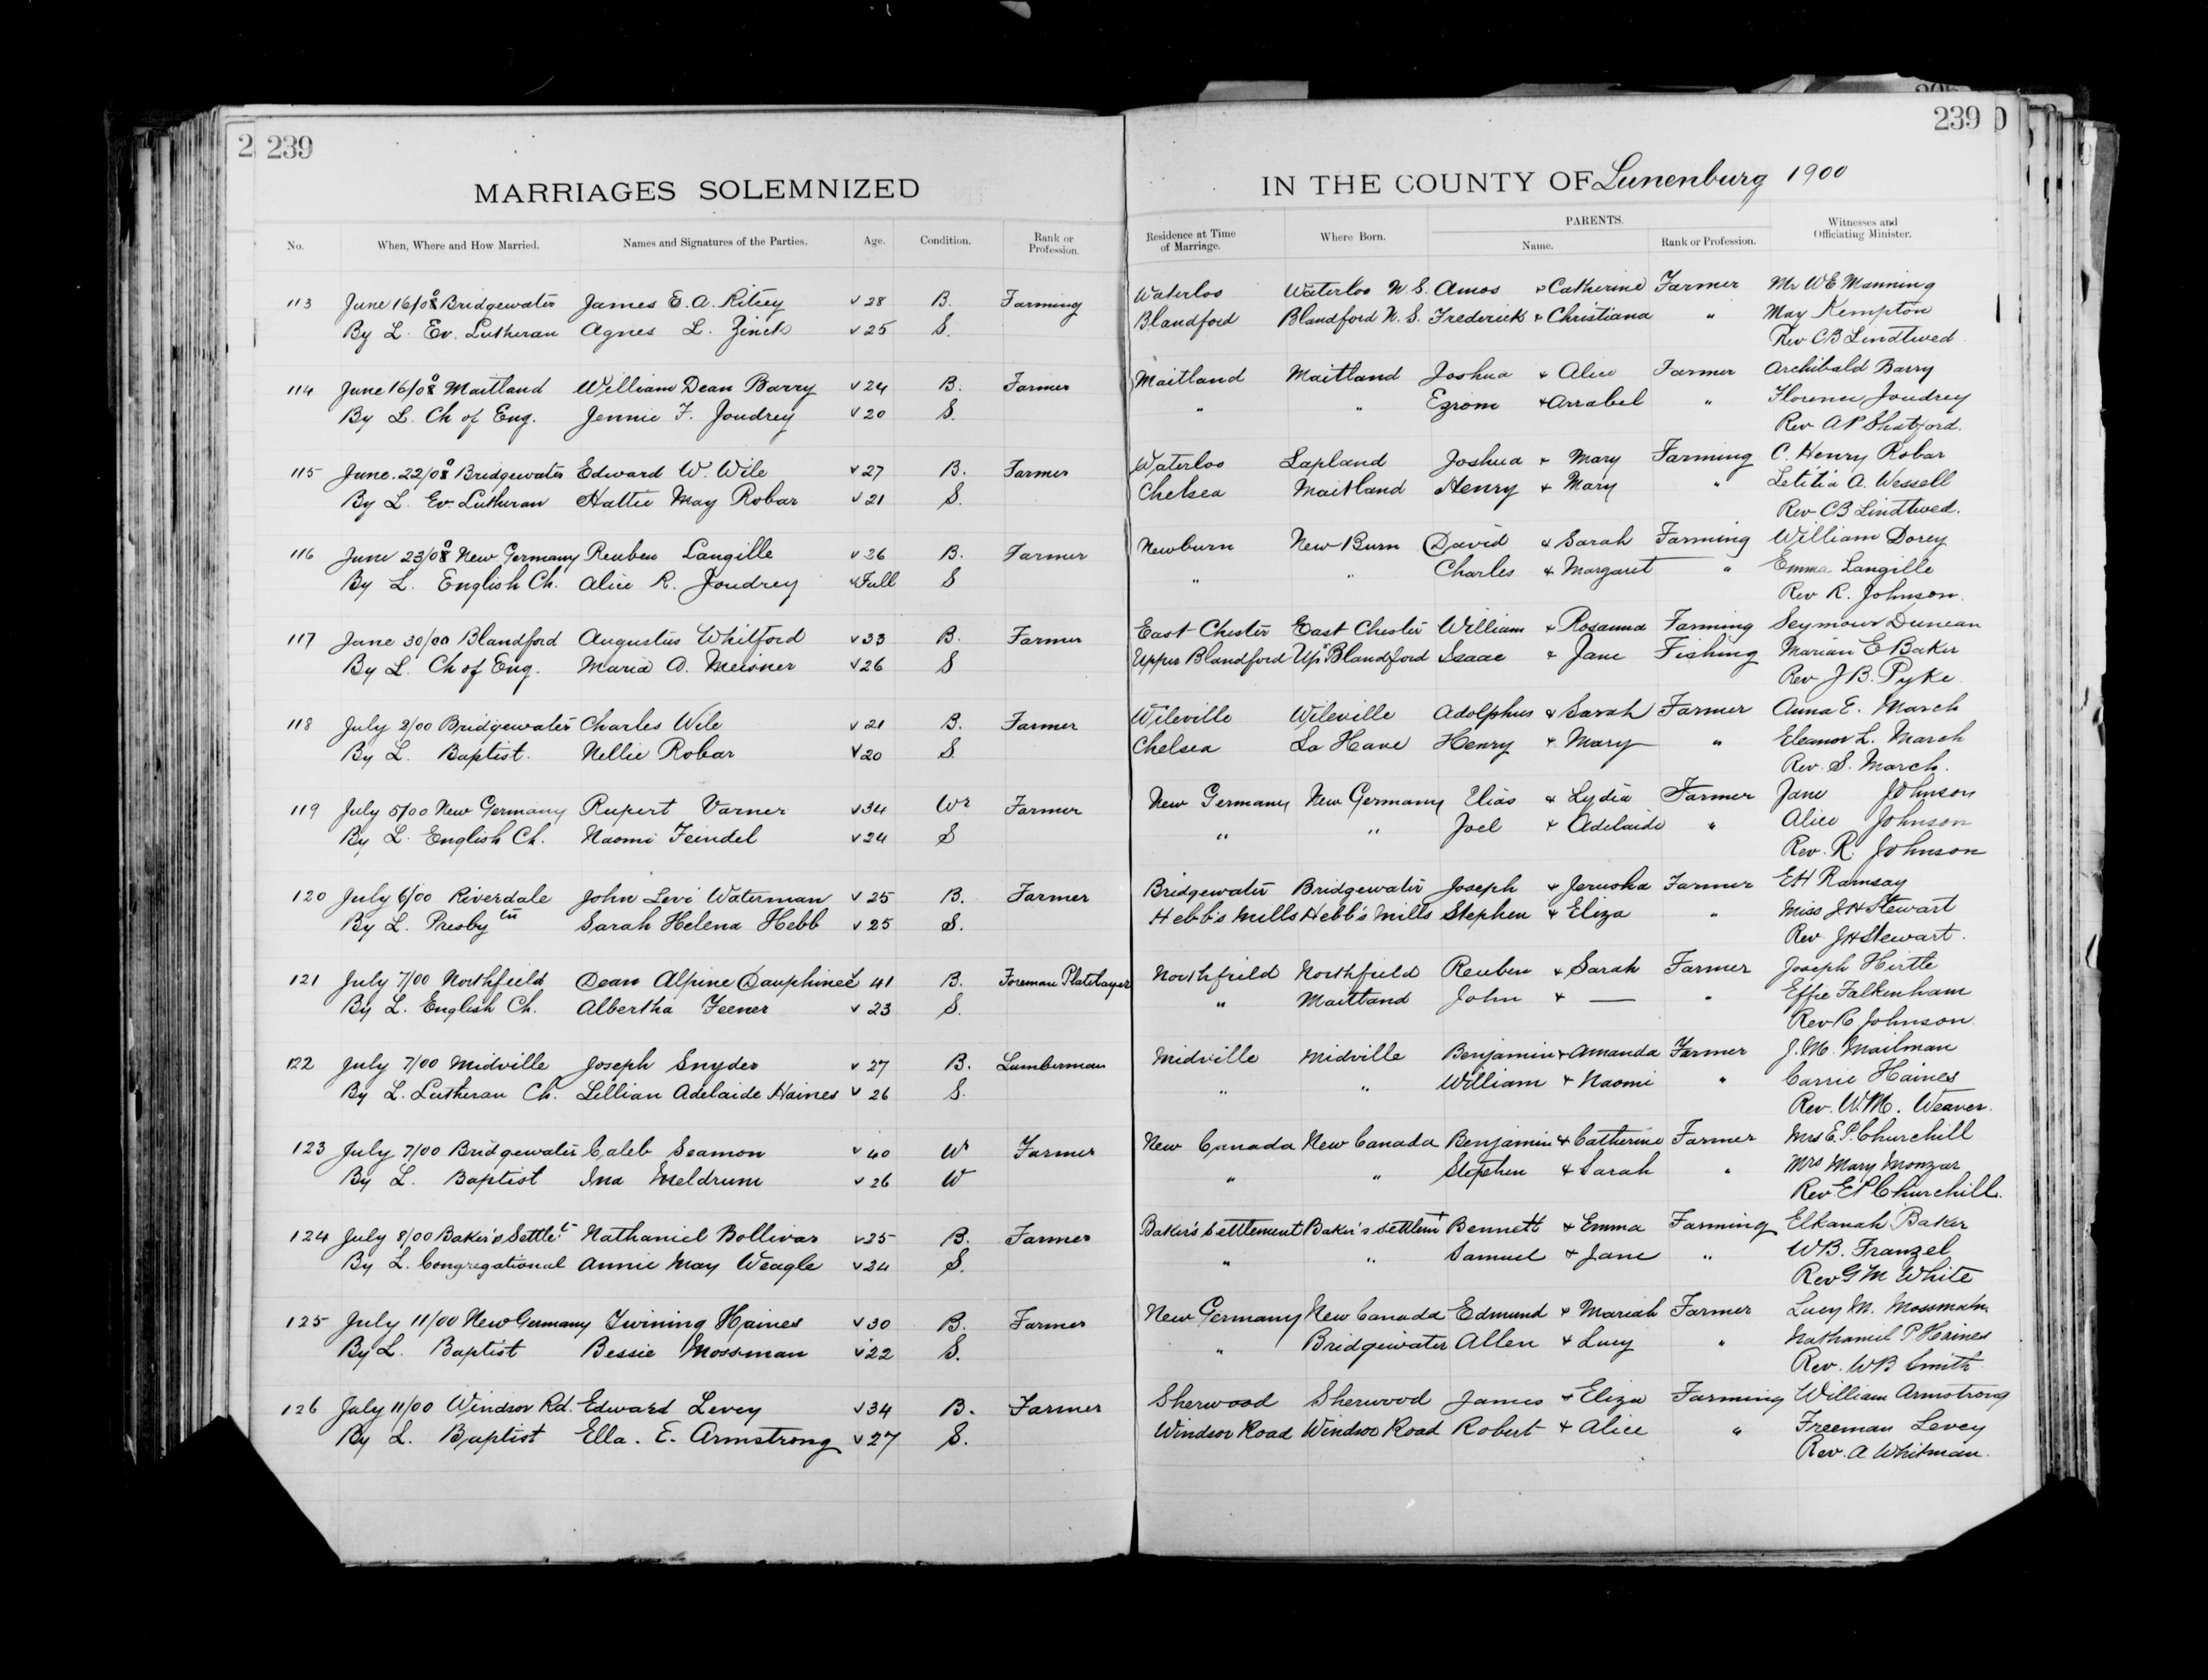 2 239
239 0
MARRIAGES SOLEMNIZED IN THE COUNTY OF Lunenburg 1900
No. When, Where and How Married. Names and Signatures of the Parties. Age. Condition. Rank or Profession. Residence at Time of Marriage. Where Born. PARENTS. Name. Rank or Profession. Witnesses and Officiating Minister.
113 June 16/00 Bridgewater James E. A. Ritcey v 28 B. Farming Waterloo Waterloo N. S. Amos & Catherine Farmer Mr W E Manning
By L. Ev. Lutheran Agnes L. Zinck v 25 S. Blandford Blandford N. S. Frederick & Christiana " May Kempton
Rev C B Lindtwed
114 June 16/00 Maitland William Dean Barry v 24 B. Farmer Maitland Maitland Joshua & Alice Farmer Archibald Barry
By L. Ch of Eng. Jennie F. Joudrey v 20 S. " " Ezrom & Arrabel " Florence Joudrey
Rev A P Shatford.
115 June 22/00 Bridgewater Edward W. Wile v 27 B. Farmer Waterloo Lapland Joshua & Mary Farming C. Henry Robar
By L. Ev. Lutheran Hattie May Robar v 21 S. Chelsea Maitland Henry & Mary " Letitia A. Wessell
Rev C B Lindtwed.
116 June 23/00 New Germany Reuben Langille v 26 B. Farmer Newburn New Burn David & Sarah Farming William Dorey
By L. English Ch. Alice R. Joudrey v Full S " " Charles & Margaret " Emma Langille
Rev R. Johnson.
117 June 30/00 Blandford Augustus Whitford v 33 B. Farmer East Chester East Chester William & Rosanna Farming Seymour Duncan
By L. Ch of Eng. Maria A. Meisner v 26 S Upper Blandford Upr Blandford Isaac & Jane Fishing Marian E Baker
Rev J B. Pyke.
118 July 2/00 Bridgewater Charles Wile v 21 B. Farmer Wileville Wileville Adolphus & Sarah Farmer Anna E. March
By L. Baptist. Nellie Robar v 20 S. Chelsea La Have Henry & Mary " Eleanor L. March
Rev. S. March.
119 July 5/00 New Germany Rupert Varner v 34 Wr Farmer New Germany New Germany Elias & Lydia Farmer Jane Johnson
By L. English Ch. Naomi Feindel v 24 S " " Joel & Adelaide " Alice Johnson
Rev. R. Johnson
120 July 6/00 Riverdale John Levi Waterman v 25 B. Farmer Bridgewater Bridgewater Joseph & Jerusha Farmer E H Ramsay
By L. Presby Sarah Helena Hebb v 25 S. Hebb's Mills Hebb's Mills Stephen & Eliza " Miss J H Stewart
Rev. J H Stewart.
121 July 7/00 Northfield Dean Alpine Dauphinee v 41 B. Foreman Platelayer Northfield Northfield Reuben & Sarah Farmer Joseph Hirtle
By L. English Ch. Albertha Feener v 23 S. " Maitland John & — " Effie Falkenham
Rev R Johnson
122 July 7/00 Midville Joseph Snyder v 27 B. Lumberman Midville Midville Benjamin & Amanda Farmer J. M. Mailman
By L. Lutheran Ch. Lillian Adelaide Haines v 26 S. " " William & Naomi " Carrie Haines
Rev. W. M. Weaver.
123 July 7/00 Bridgewater Caleb Seamon v 40 Wr Farmer New Canada New Canada Benjamin & Catherine Farmer Mrs E. P. Churchill
By L. Baptist Ina Meldrum v 26 W " " Stephen & Sarah " Mrs Mary Monzar
Rev. E P Churchill.
124 July 8/00 Baker's Settlet Nathaniel Bollivar v 25 B. Farmer Baker's Settlement Baker's Settlemt Bennett & Emma Farming Elkanah Baker
By L. Congregational Annie May Weagle v 24 S. " " Samuel & Jane " W B. Franzel
Rev G M White
125 July 11/00 New Germany Twining Haines v 30 B. Farmer New Germany New Canada Edmund & Mariah Farmer Lucy M. Mossman
By L. Baptist Bessie Mossman v 22 S. " Bridgewater Allen & Lucy " Nathaniel P Haines
Rev. W B Smith
126 July 11/00 Windsor Rd. Edward Levey v 34 B. Farmer Sherwood Sherwood James & Eliza Farming William Armstrong
By L. Baptist Ella. E. Armstrong v 27 S. Windsor Road Windsor Road Robert & Alice " Freeman Levey
Rev. A Whitman.